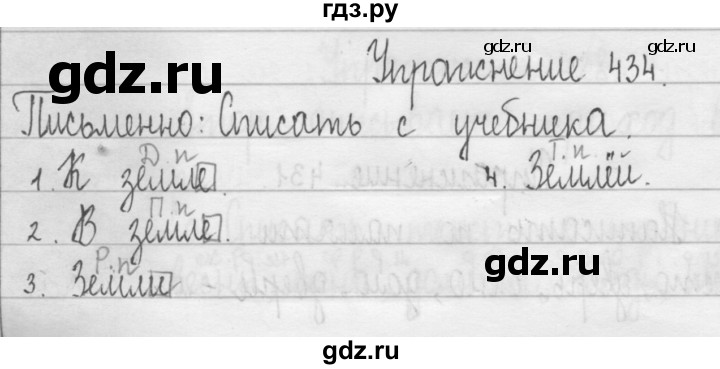 гдз.ру
Упражнение 434.
gdz.ru gdz.ru
gdz.ru
Письменно: Списать с учебника
Д.п Т.п
1. К земле. 4. Землёй.
П.п
2. В земле.
Р.п
3. Земли
gdz.ru
gdz.ru
gdz.ru